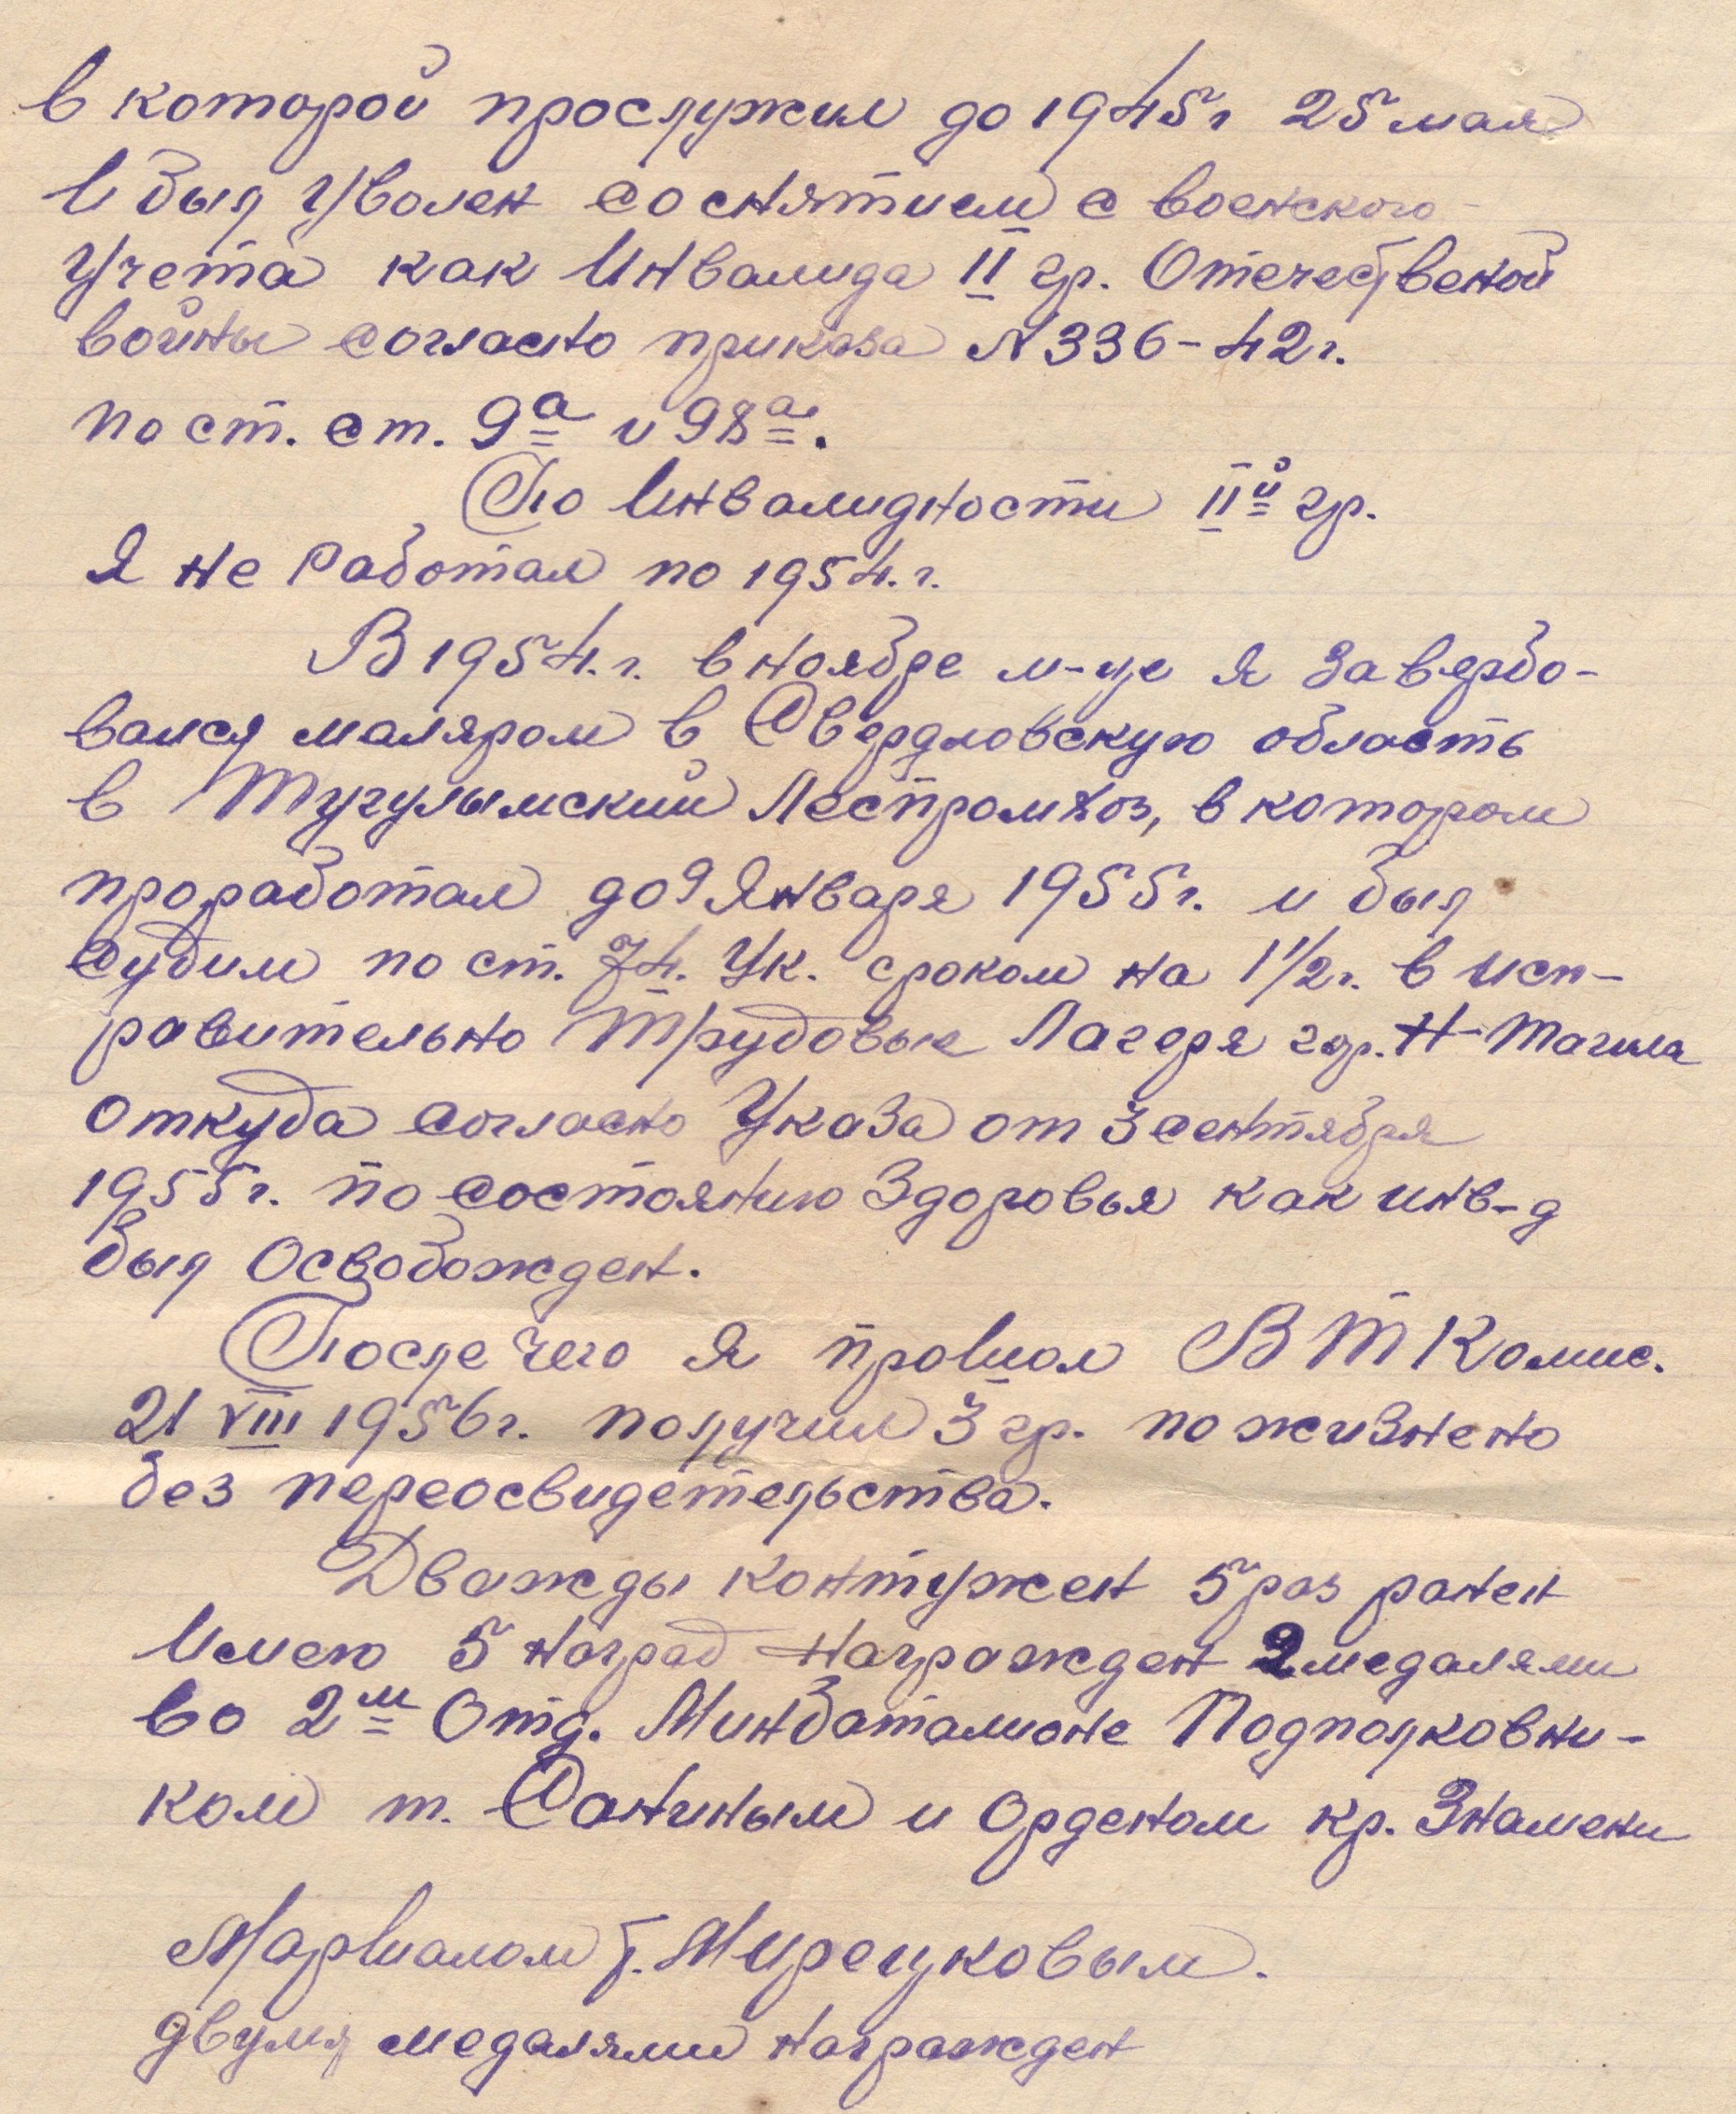 в которой прослужил до 1945г 25 мая
И был Уволен со снятием с военского
Учета как Инвалида II гр. Отечественой
войны согласно приказа N 336-42г.
по ст. ст. 9а и 98а.
По Инвалидности IIй гр.
Я не работал по 1954.г.
В 1954.г. в ноябре м-це я завербо-
вался маляром в Свердловскую область
в Тугулымский Леспромхоз, в котором
проработал до 9 Января 1955г. и был
судим по ст. 74. Ук. сроком на 1 1/2г. в исп-
равительно Трудовые Лагеря гор. Н-Тагила
откуда согласно Указа от 3 сентября
1955г. по состоянию Здоровья как инв-д
был Освобожден.
После чего я прошол ВТКомис.
21 VIII 1956г. получил 3 гр. пожизнено
без переосвидетельства.
Дважды контужен 5 раз ранен
Имею 5 наград награжден 2 медалями
во 2м Отд. Минбаталионе Подполковни-
ком т. Саниным и Орденом кр. Знамени
Маршалом т. Мирецковым.
двумя медалями награжден